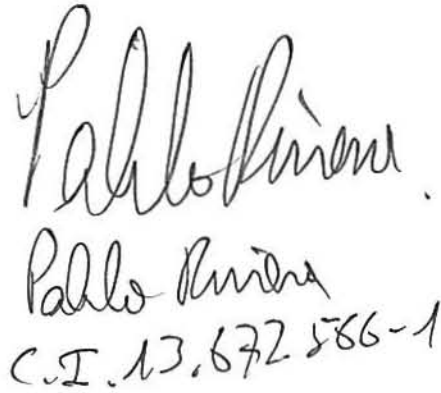 Pablo Rivera.
Pablo Rivera
C.I. 13.672.566-1